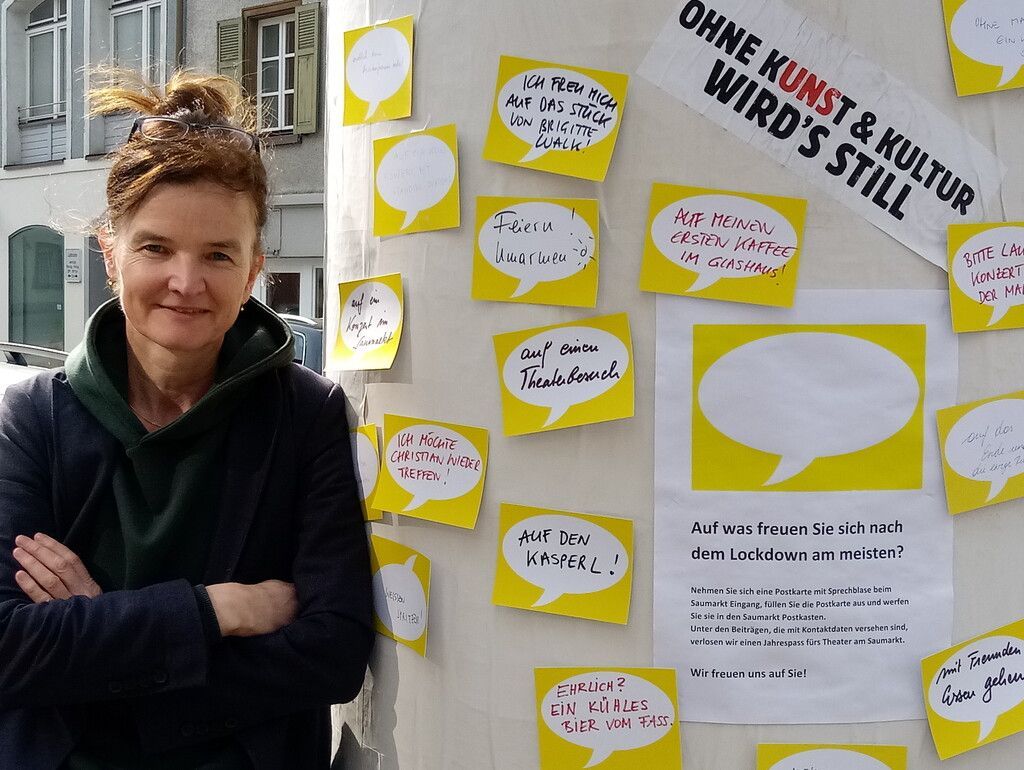 OHNE KUNST & KULTUR
WIRD'S STILL
ICH FREU MICH
AUF DAS STÜCK
VON BRIGITTE
WALK!
Feiern!
Umarmen
AUF MEINEN
ERSTEN KAFFEE
IM GLASHAUS!
auf ein
Konzert im
Saumarkt
auf einen
Theaterbesuch
ICH MÖCHTE
CHRISTIAN WIEDER
TREFFEN!
AUF DEN
KASPERL!
EHRLICH?
EIN KÜHLES
BIER VOM FASS.
Auf was freuen Sie sich nach
dem Lockdown am meisten?
Nehmen Sie sich eine Postkarte mit Sprechblase beim
Saumarkt Eingang, füllen Sie die Postkarte aus und werfen
Sie sie in den Saumarkt Postkasten.
Unter den Beiträgen, die mit Kontaktdaten versehen sind,
verlosen wir einen Jahrespass fürs Theater am Saumarkt.
Wir freuen uns auf Sie!
OHNE
EIN
BITTE
KONZERT
DER
auf das
Ende
die
mit Freunden
Essen gehen